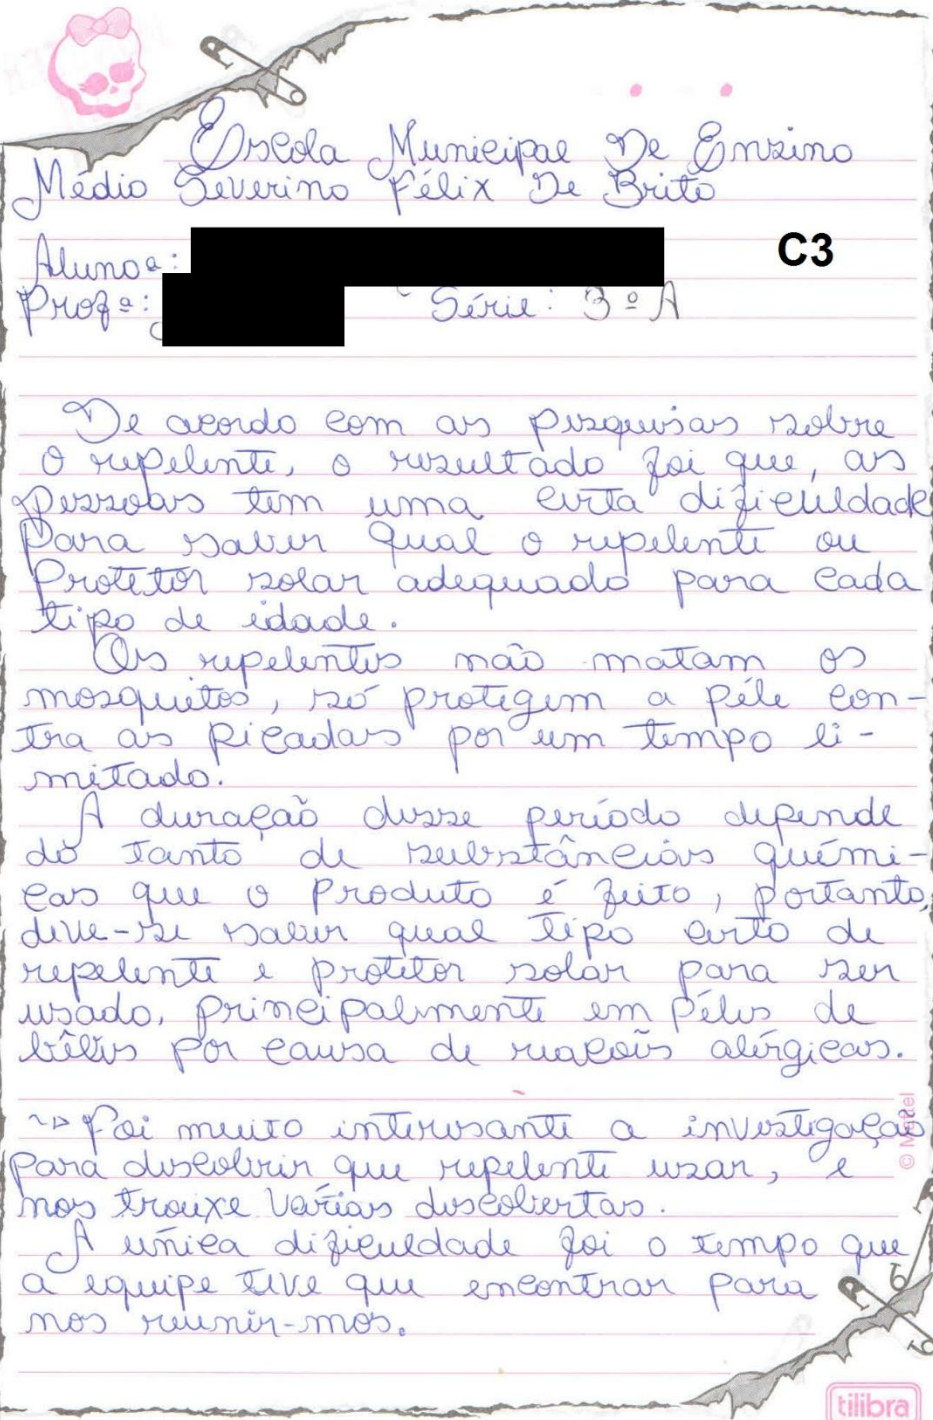 Escola Municipal De Enzino
Médio Severino Félix De Brito
Alunoª:
C3
Profª:
Série: 3º A
De acordo com as pesquisas sobre
o repelente, o resultado foi que, as
pessoas tem uma certa dificuldade
Para saber qual o repelente ou
Protetor solar adequado para cada
tipo de idade.
Os repelentes não matam os
mosquitos, só protegem a péle con-
tra as picadas por um tempo li-
mitado.
A duração desse período depende
do tanto de substâncias quémi-
cas que o produto é feito, portanto,
deve-se saber qual tipo certo de
repelente e protetor solar para ser
usado, principalmente em péles de
bêbês por causa de reações alérgicas.
Foi muito interesante a investigação
para descobrir que repelente uzar, e
nos trouxe várias descobertas.
A única dificuldade foi o tempo que
a equipe teve que encontrar para
nos reunir-mos.
© Mattel
tilibra